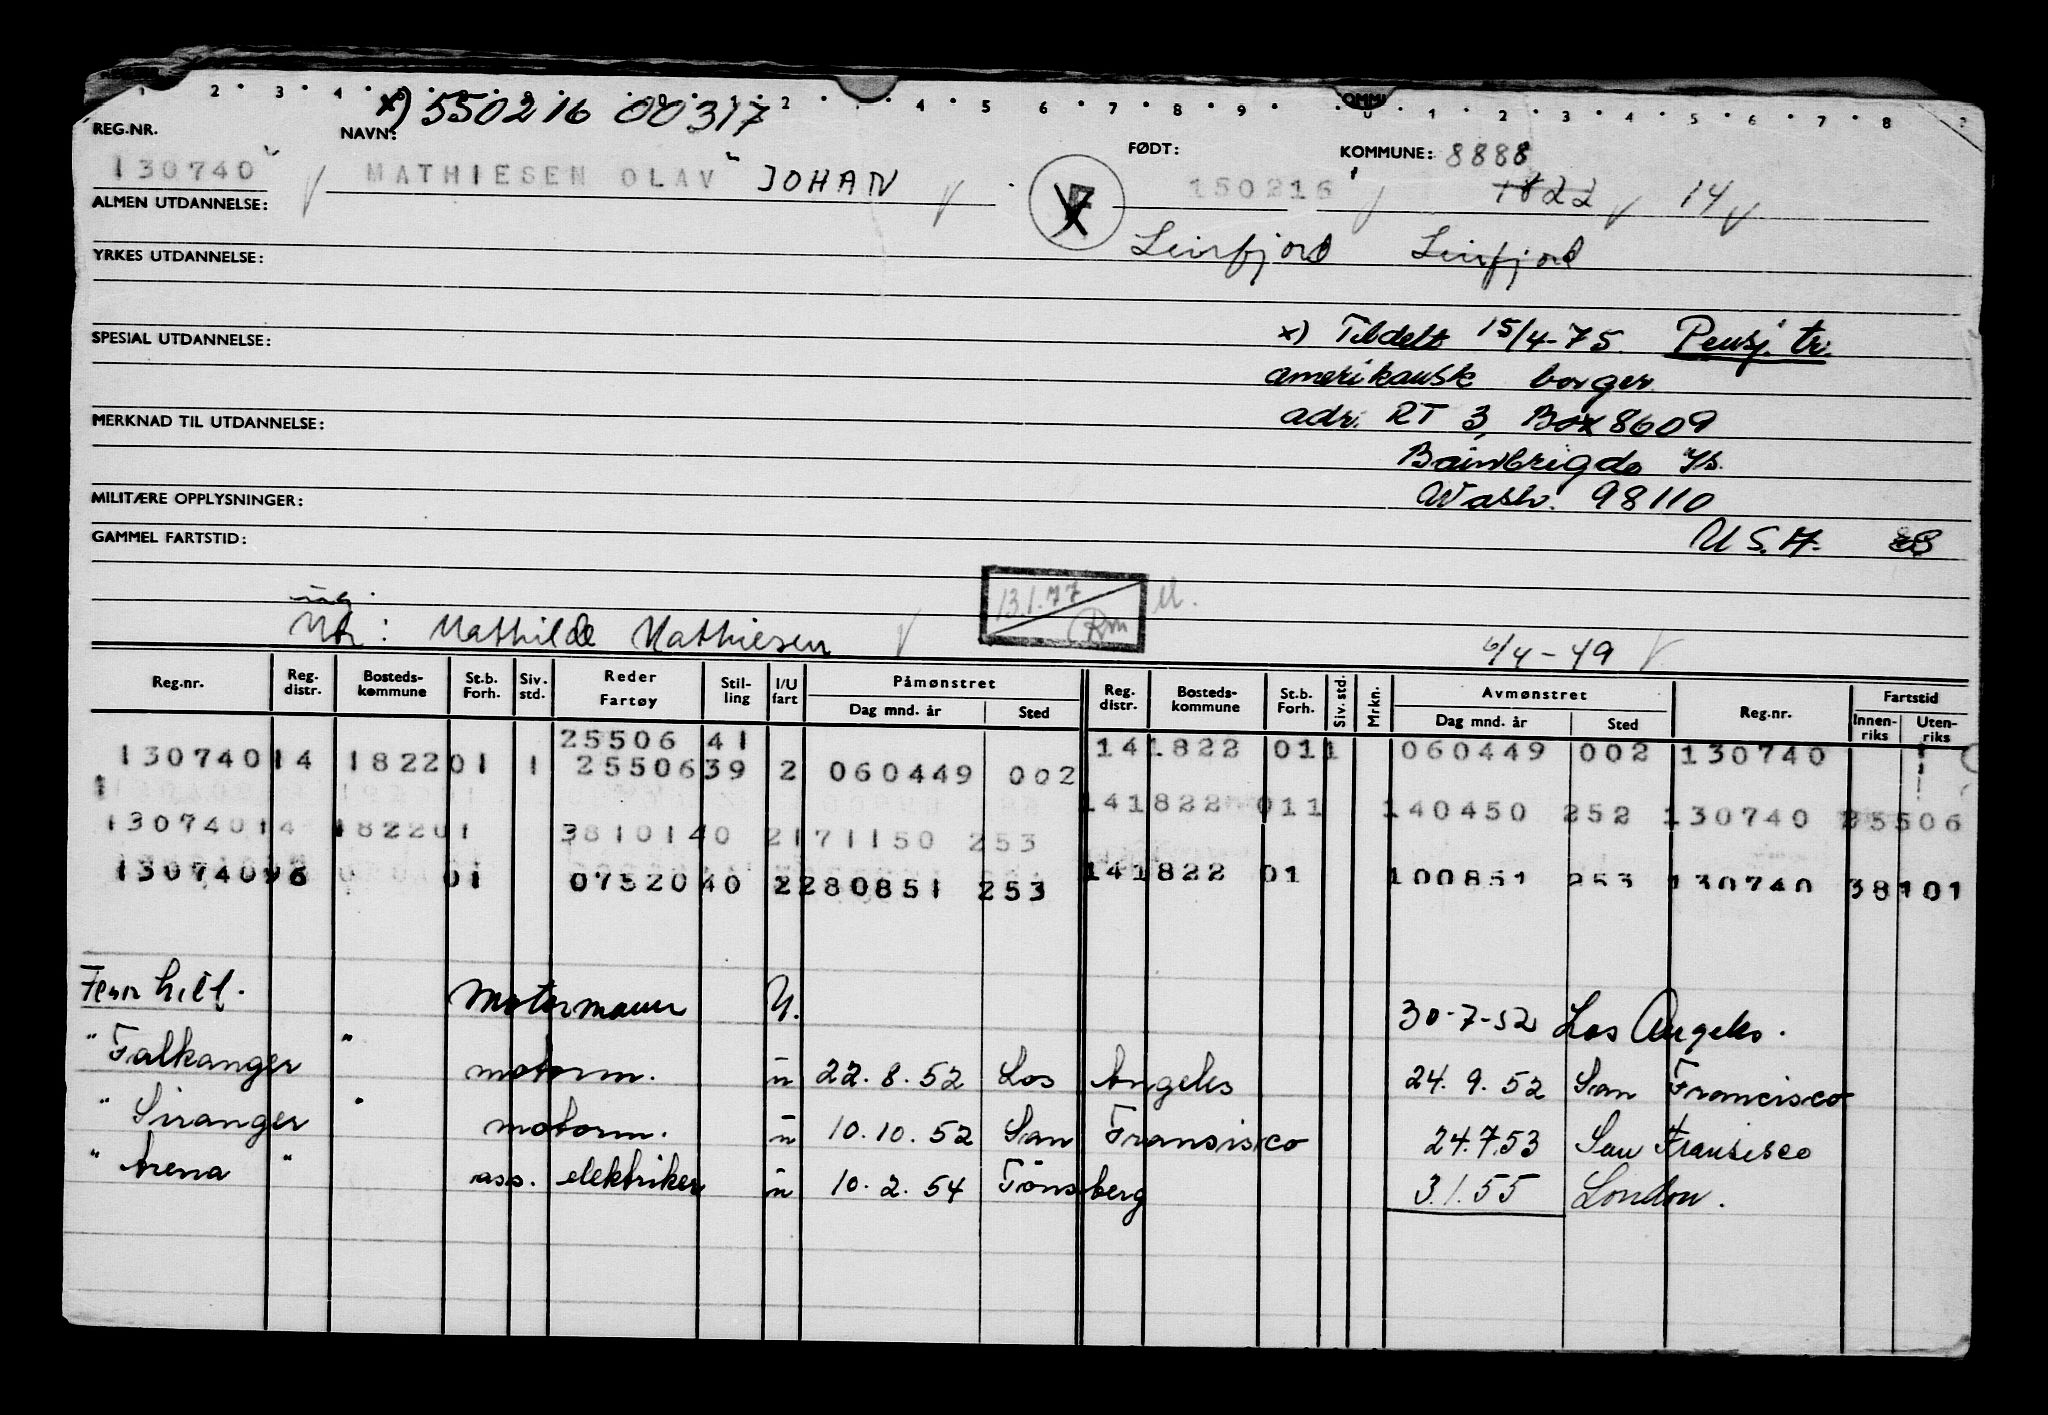 x) 550216 00317
REG.NR. NAVN: FØDT: KOMMUNE: 8888
130740 MATHIESEN OLAV JOHAN 150216 1822 14
ALMEN UTDANNELSE:
Leirfjord Leirfjord
YRKES UTDANNELSE:
SPESIAL UTDANNELSE: x) Tildelt 15/4-75. Pensj. tr.
amerikansk borger
MERKNAD TIL UTDANNELSE: adr. RT 3, Box 8609
Bainbrigde Is.
MILITÆRE OPPLYSNINGER: Wash. 98110
GAMMEL FARTSTID: U.S.A.
13.1.77 Rm
Mathilde Mathiesen 6/4-49
Reg.nr. Reg. distr. Bosteds-kommune St.b. Forh. Siv. std. Reder Fartøy Stil-ling I/U fart Påmønstret Dag mnd. år Sted Reg. distr. Bosteds-kommune St.b. Forh. Siv. std. Mrkn. Avmønstret Dag mnd. år Sted Reg.nr. Fartstid Innen-riks Uten-riks
25506 41 141822 011 060449 002 130740
13074014 182201 1 2550639 2 060449 002
141822 011 140450 252 130740 25506
13074014 182201 3810140 2171150 253
141822 01 100851 253 130740 38101
01 0752040 2280851 253
Fernhill. Motormann U. 30-7-52 Los Angeles.
" Falkanger " motorm. u 22.8.52 Los Angeles 24.9.52 San Francisco
" Siranger " motorm. u 10.10.52 San Fransisco 24.7.53 San Fransisco
" Arena " ass. elektriker u 10.2.54 Tönsberg 3.1.55 London.